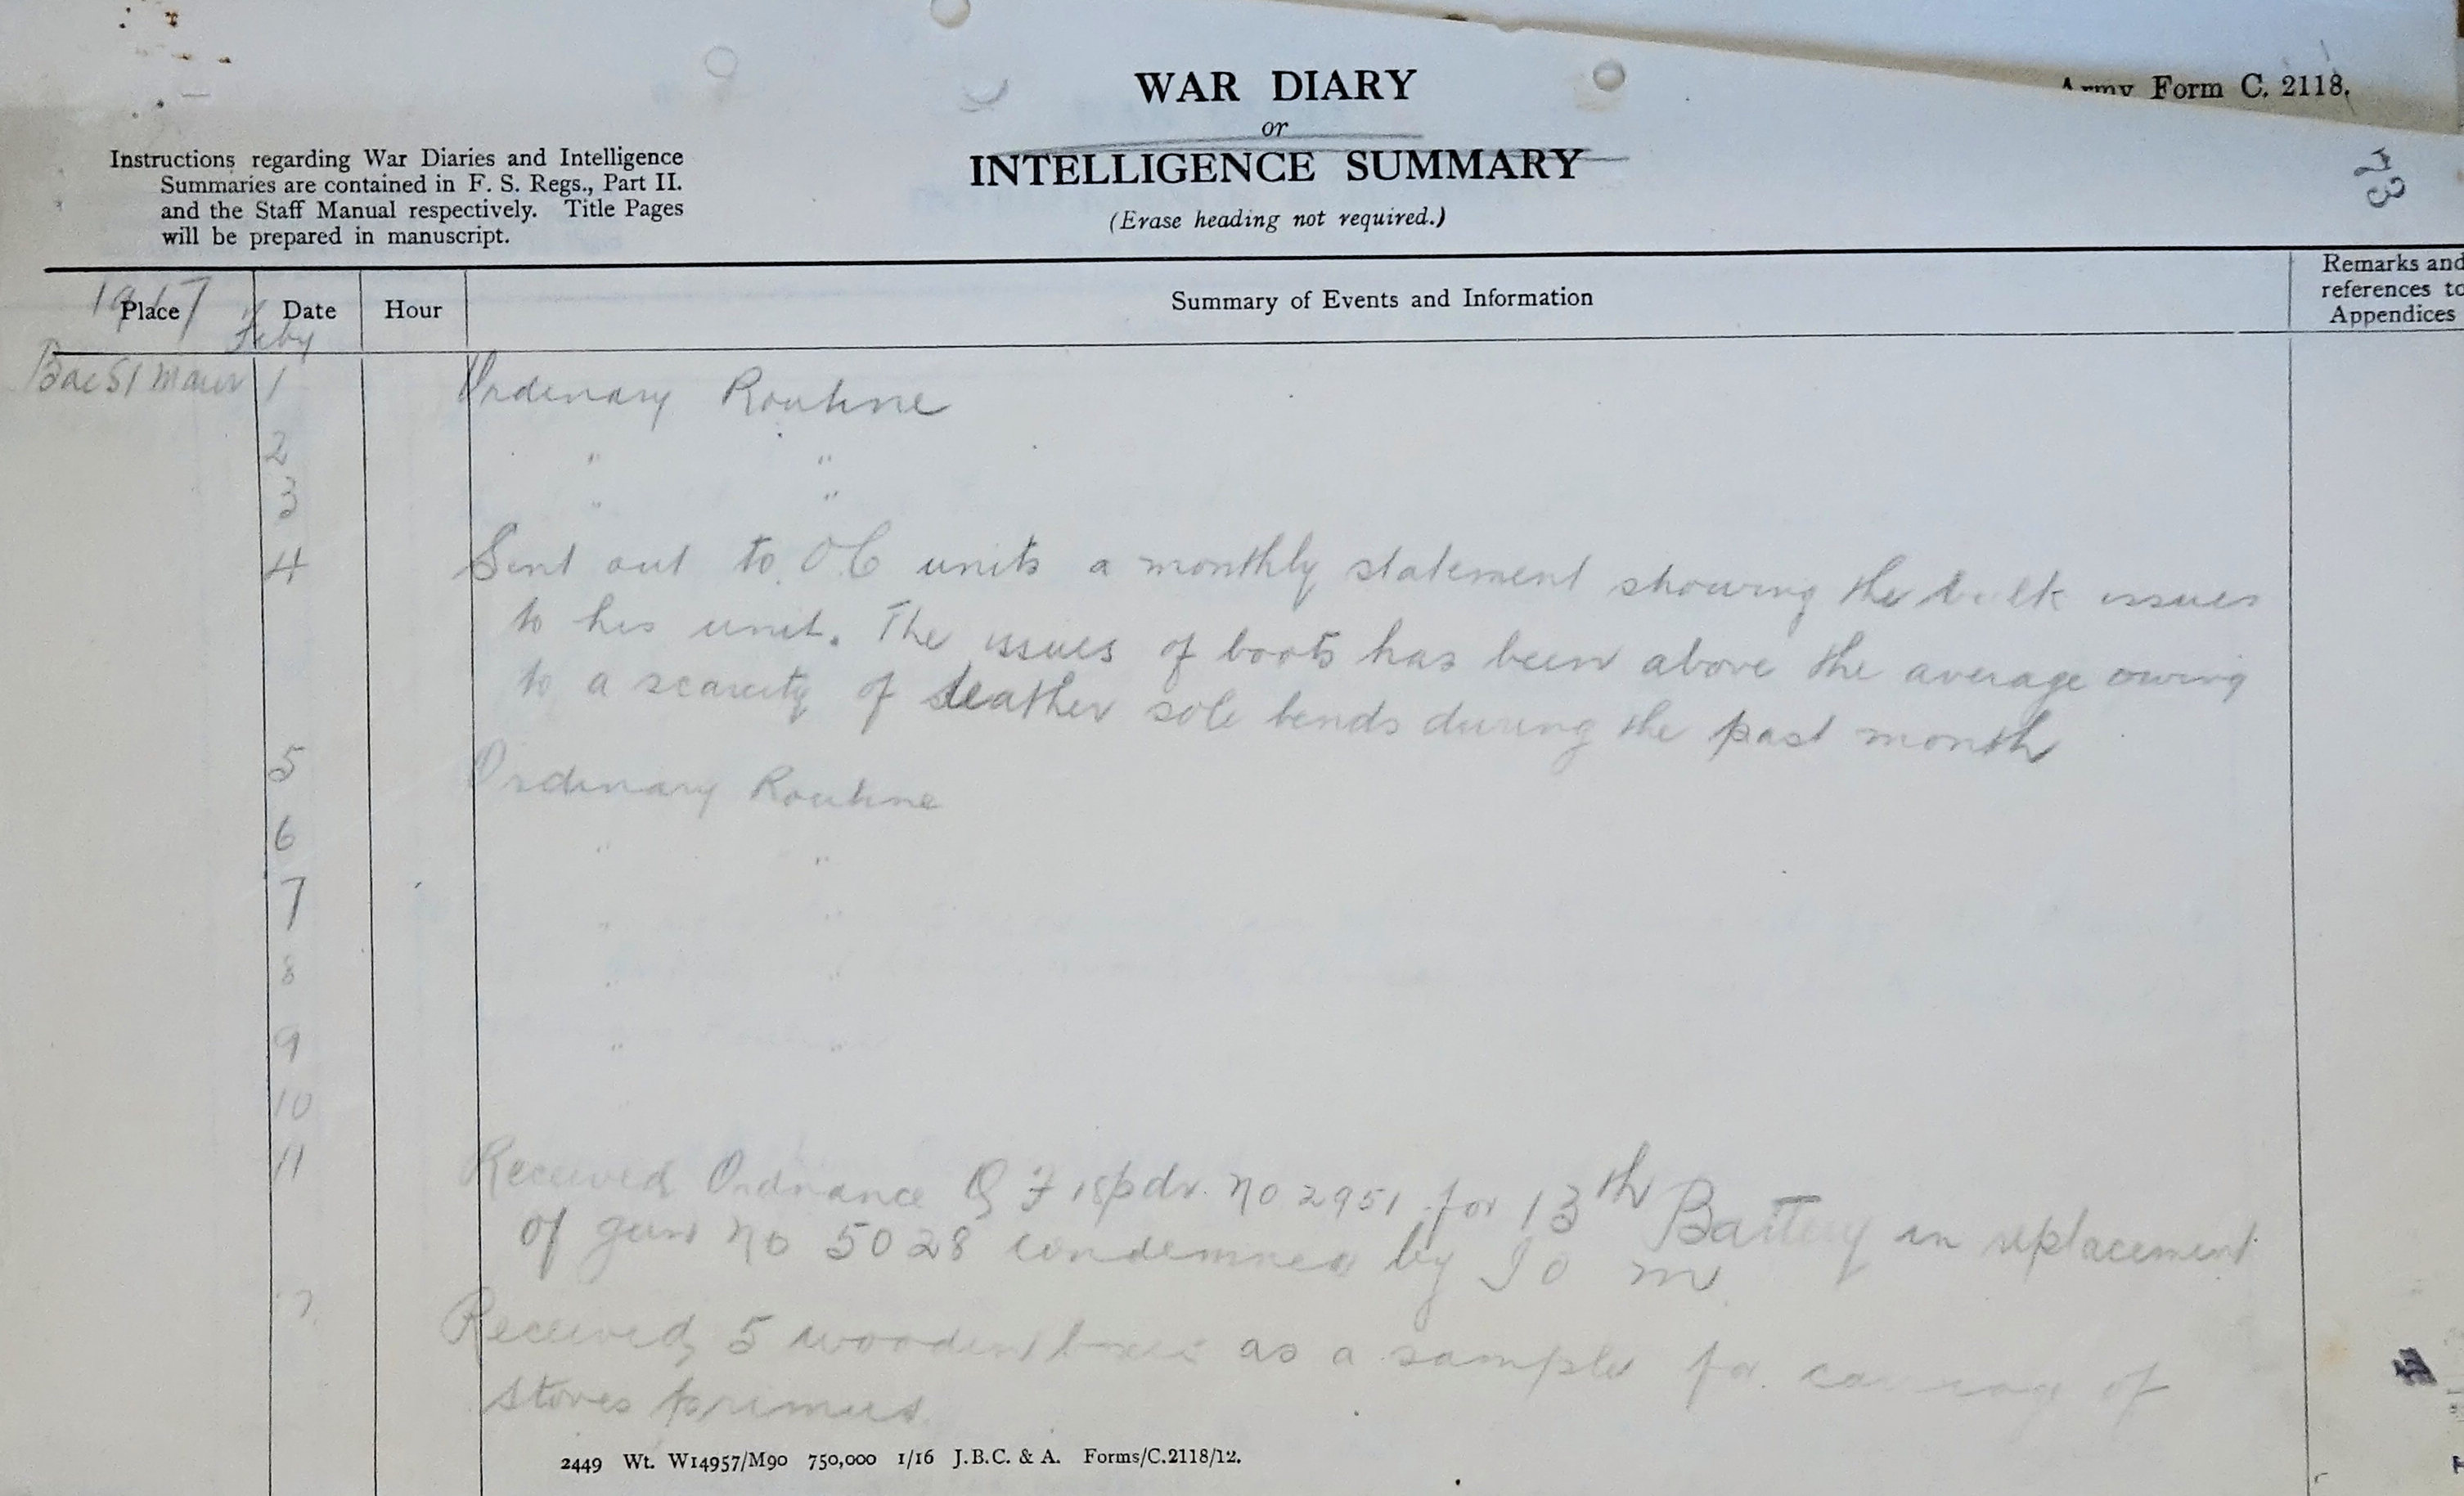 WAR DIARY
or
INTELLIGENCE SUMMARY
(Erase heading not required.)
Army Form C. 2118.
73
Instructions regarding War Diaries and Intelligence
Summaries are contained in F. S. Regs., Part II.
and the Staff Manual respectively. Title Pages
will be prepared in manuscript.
Place Date Hour Summary of Events and Information Remarks and
references to
Appendices
1917 Feby
Bac St Maur 1 Ordinary Routine
2 " "
3 " "
4 Sent out to OC units a monthly statement showing the bulk issues
to his unit. The issues of boots has been above the average owing
to a scarcity of leather sole bends during the past month
5 Ordinary Routine
6 " "
7 " "
8 " "
9 " "
10
11 Received Ordnance Q F 18pdr. no 2951 for 13th Battery in replacement
of gun no 5028 condemned by I O M
Received 5 wooden boxes as a sample for carriage of
stoves primus.
2449 Wt. W14957/M90 750,000 1/16 J.B.C. & A. Forms/C.2118/12.